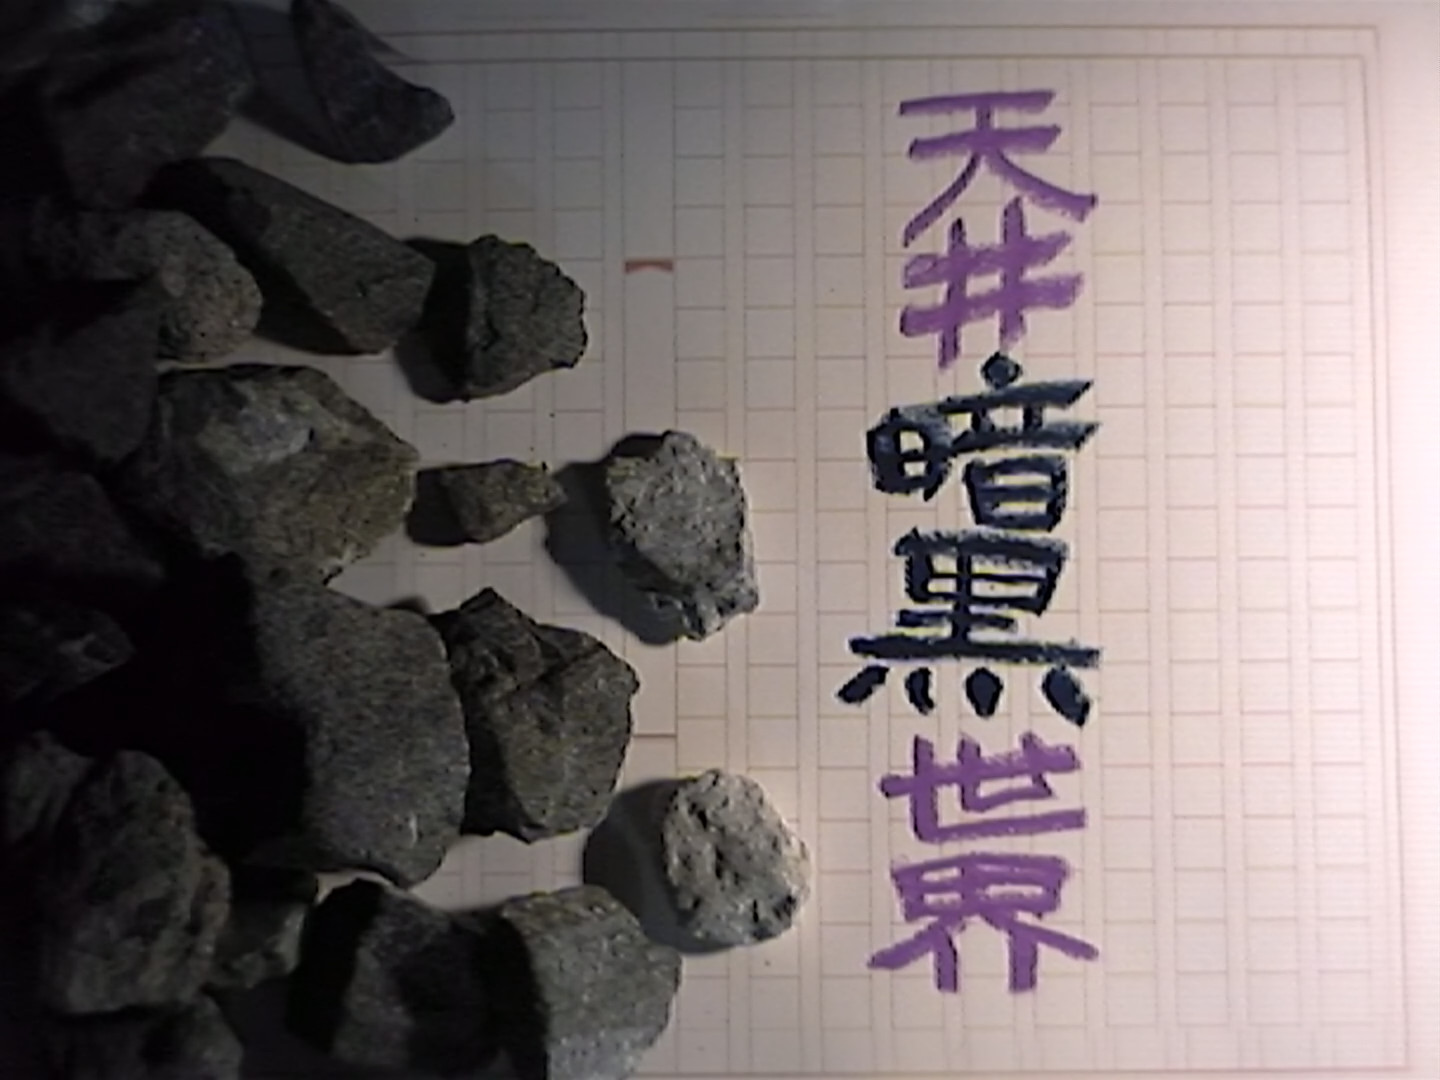 天井暗黒世界